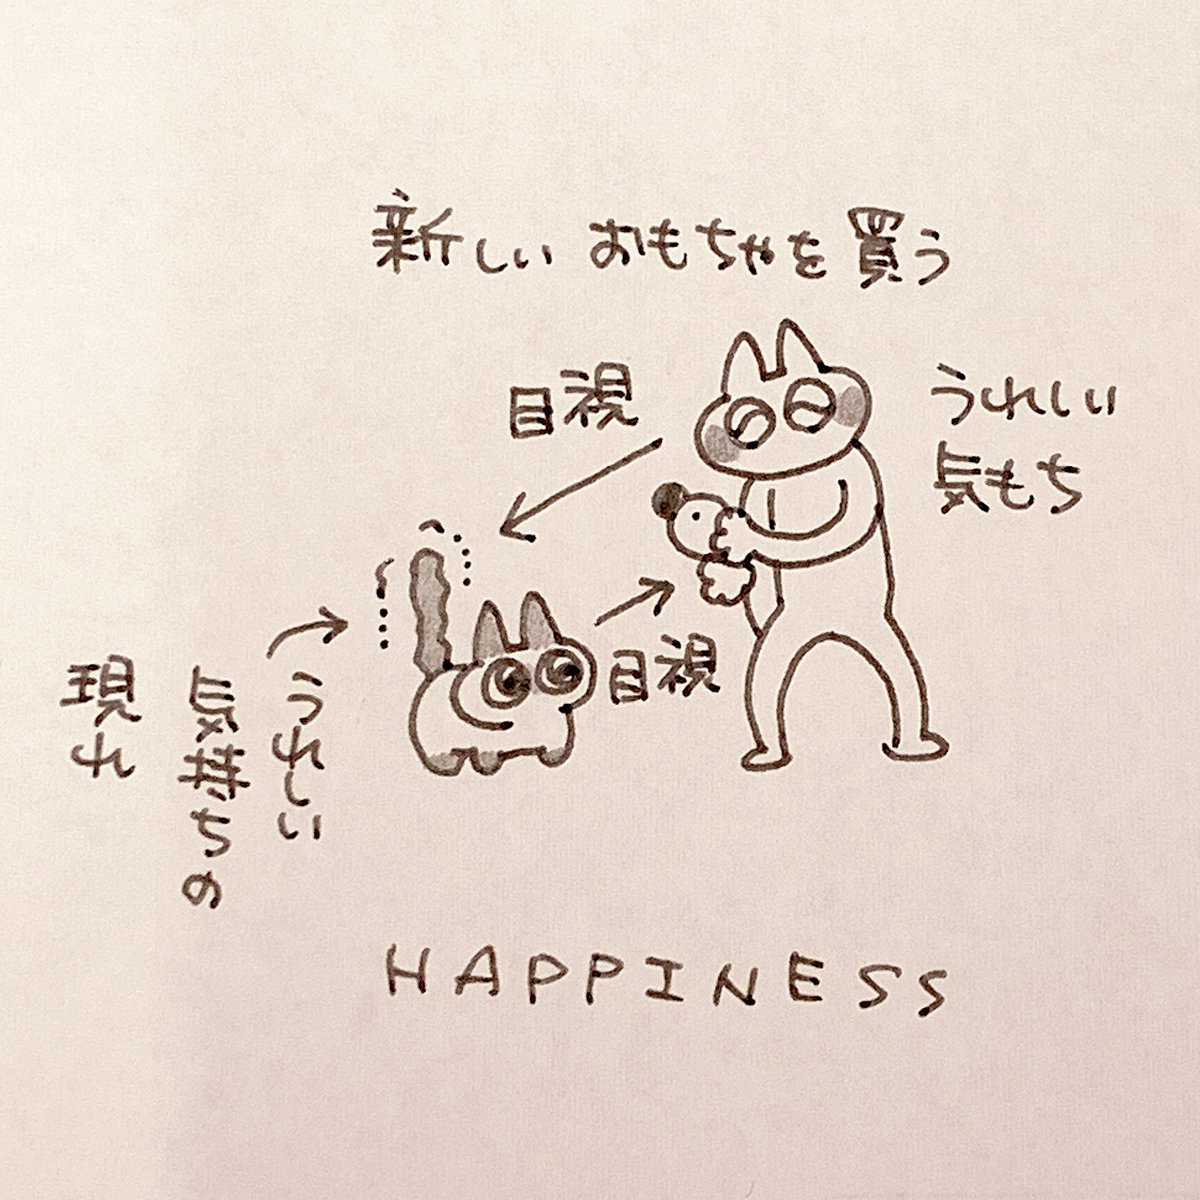 新しいおもちゃを買う
目視
うれしい
気もち
目視
うれしい
気持ちの
現れ
HAPPINESS